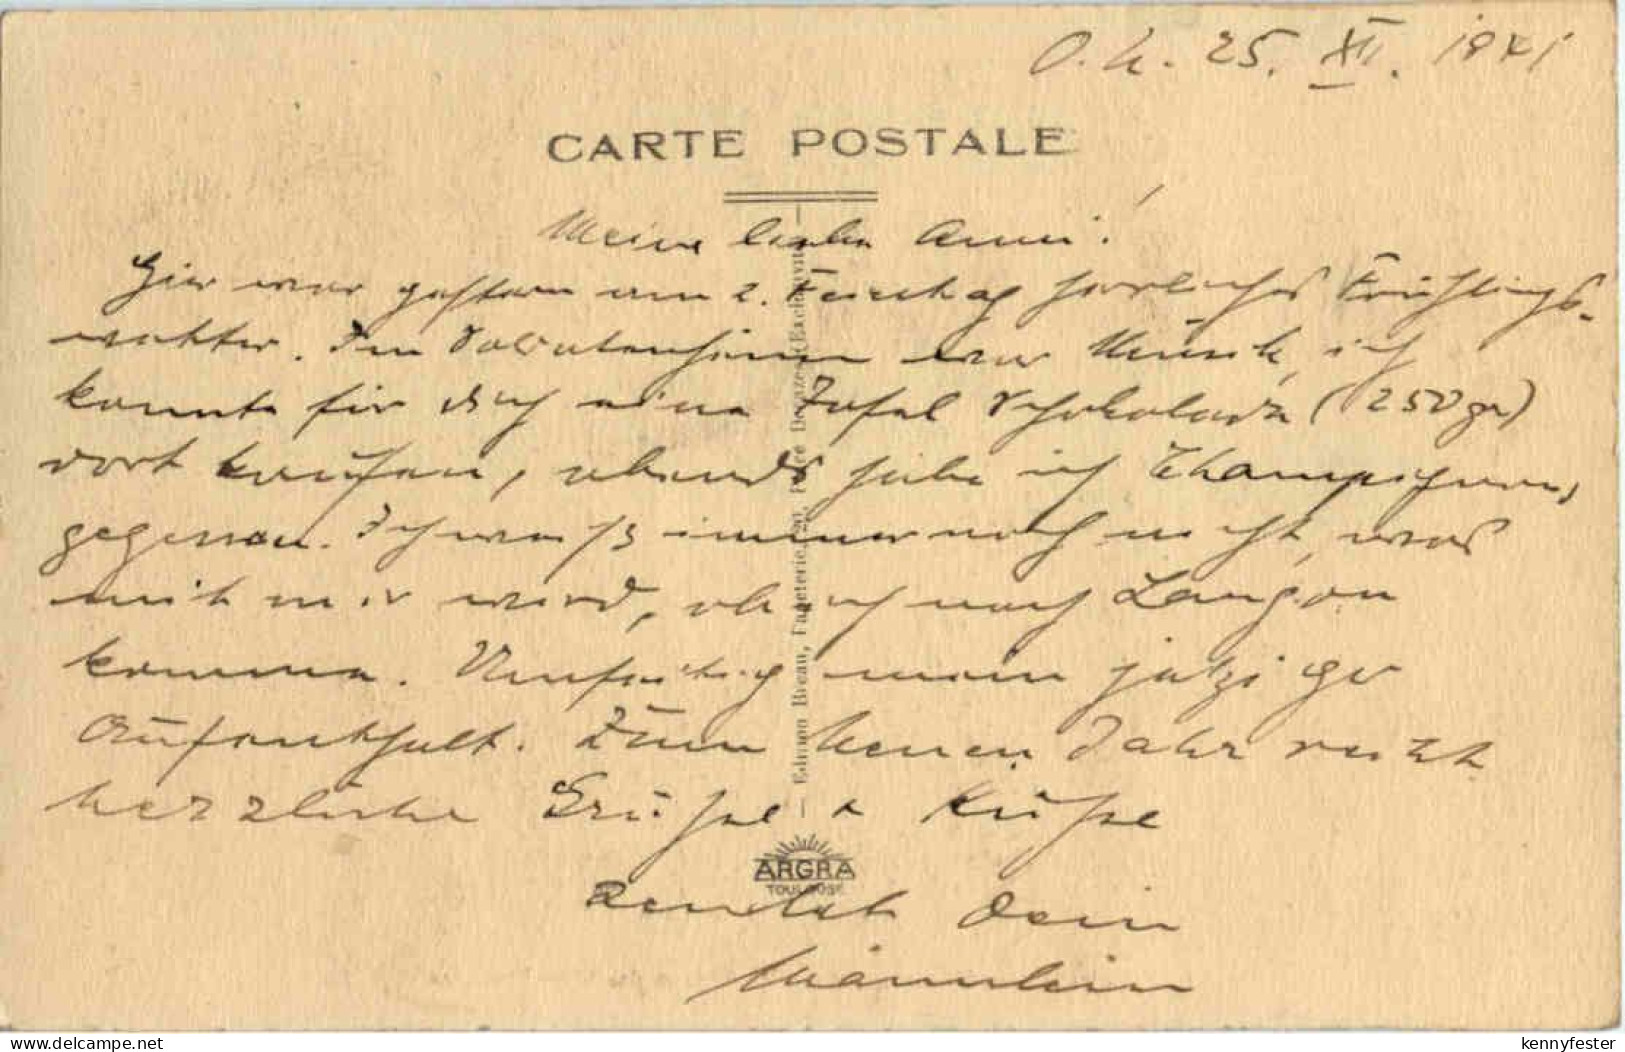 O. U. 25. XII. 1941
CARTE POSTALE
Meine liebe Anni!
Hier war gestern am 2. Feiertag herrliches Frühlings-
wetter. Im Soldatenheim war Musik, ich
konnte für Dich eine Tafel Schokolade (250 gr)
dort kaufen, abends habe ich Champignons
gegessen. Ich weiß immer noch nicht, was
mit mir wird, ob ich nach Langon
komme. Umseitig mein jetziger
Aufenthalt. Zum Neuen Jahr recht
herzliche Grüße u Küße
sendet Dein
Männlein
Edmond Breau, Papeterie, Place
ARGRA
TOULOUSE
kennyfester